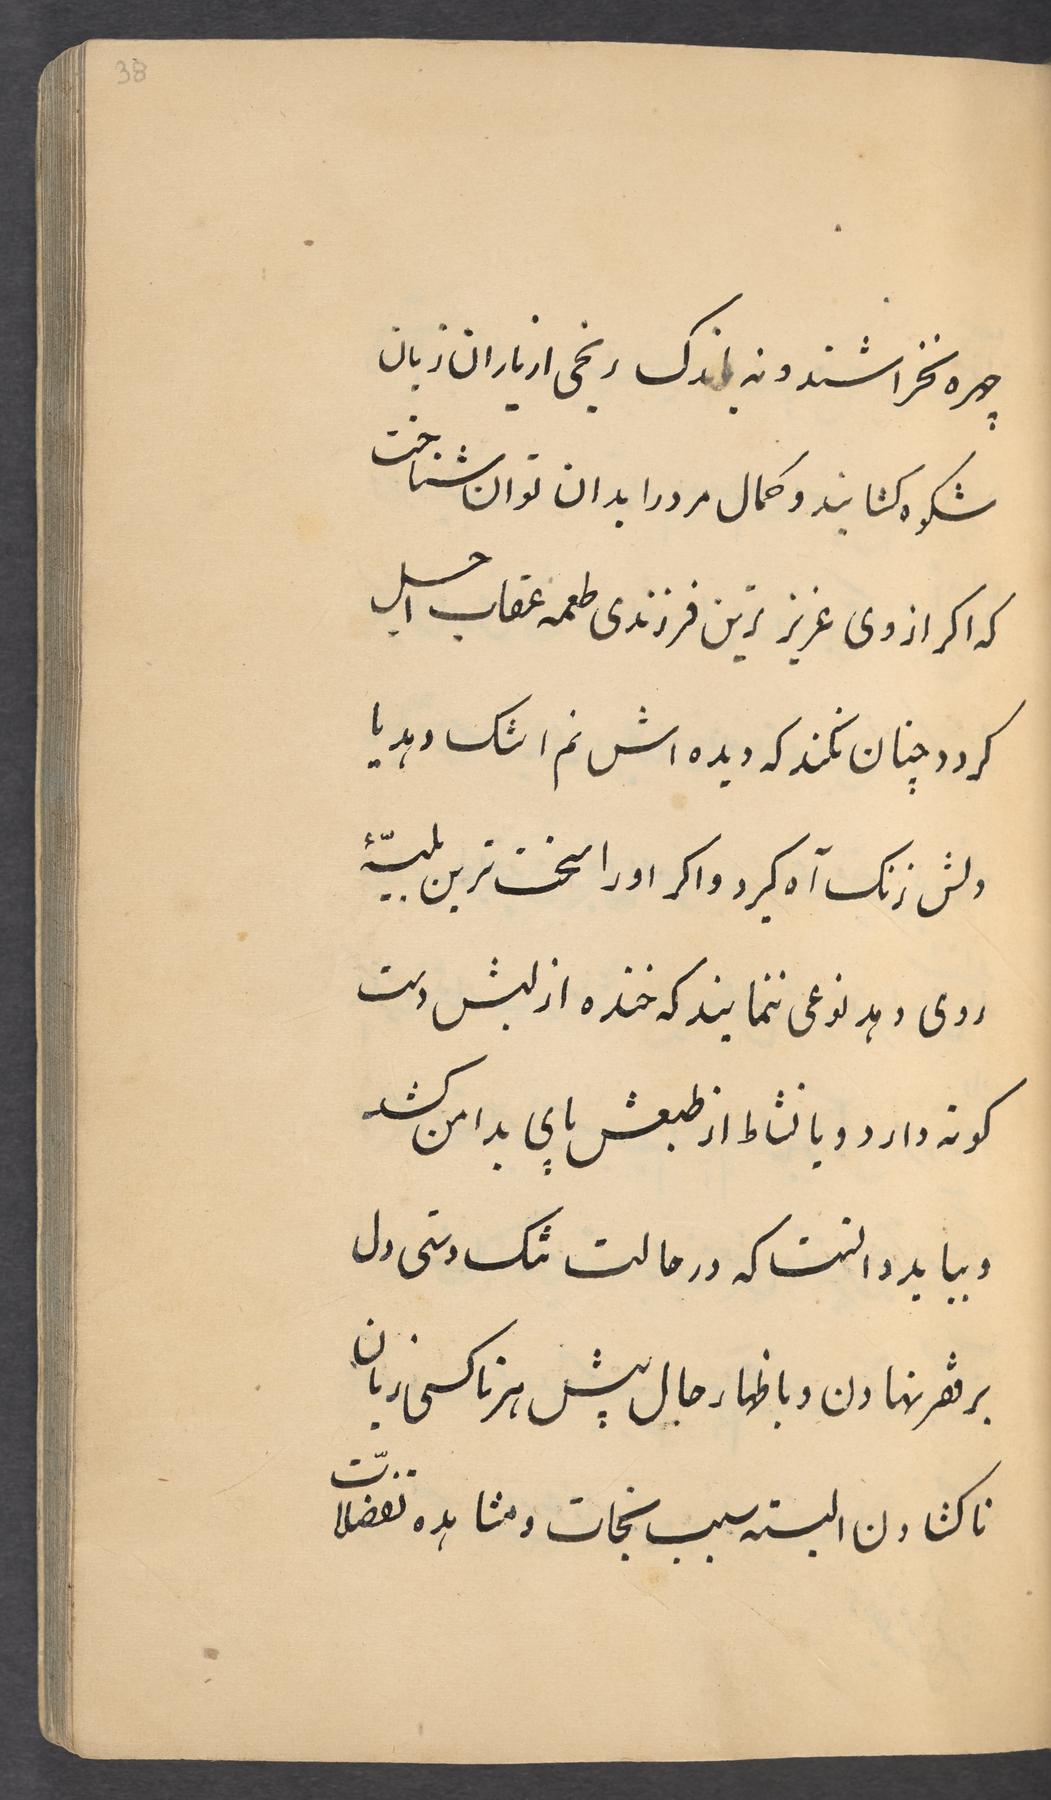 38
چهره نخراشند و نه باندک رنجی از یاران زبان
شکوه کشایند و کمال مرد را بدان توان شناخت
که اکر از وی عزیزترین فرزندی طعمه عقاب اجل
کردد چنان نکند که دیده اش نم اشک دهد یا
دلش زنک آه کیرد و اکر او را سخت ترین بلیّهٔ
روی دهد نوعی ننمایند که خنده از لبش دست
کوته دارد و یا نشاط از طبعش پای بدامن کشد
و بباید دانست که در حالت تنک دستی دل
بر فقر نهادن و باظهار حال پیش هر ناکسی زبان
ناکشادن البته سبب نجات و مشاهده تفضلاّت